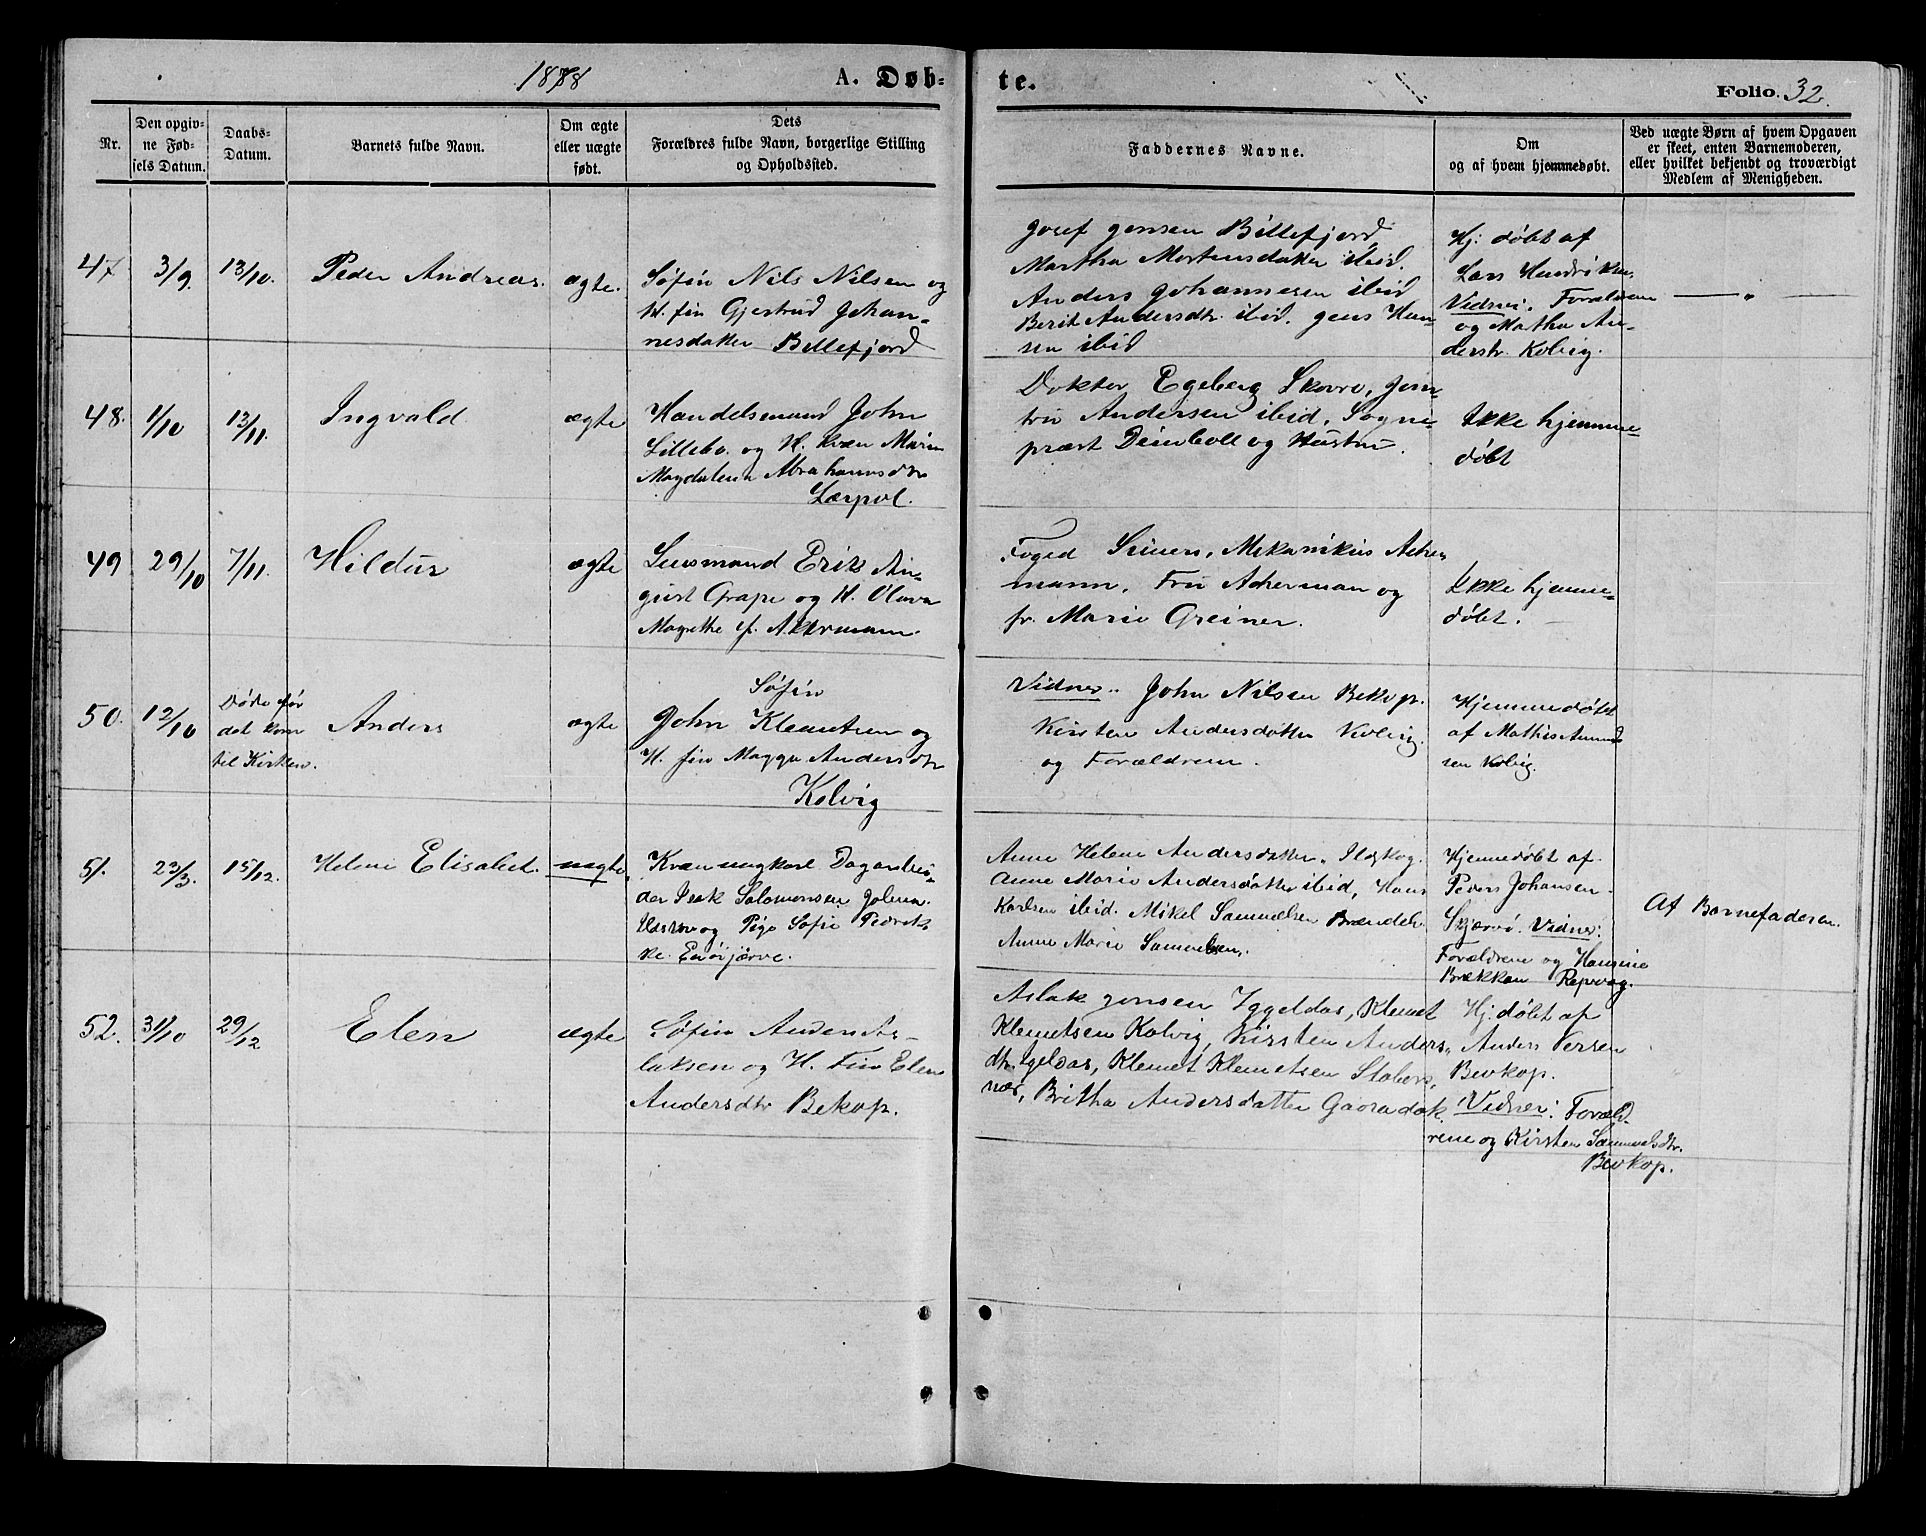 1878
A. Døb-
te.
Folio. 32.
Nr.
Den opgiv-
ne Fød-
sels Datum.
Daabs-
Datum.
Barnets fulde Navn.
Om ægte
eller uægte
født.
Dets
Forældres fulde Navn, borgerlige Stilling
og Opholdssted.
Faddernes Navne.
Om
og af hvem hjemmedøbt.
Ved uægte Børn af hvem Opgaven
er skeet, enten Barnemoderen,
eller hvilket bekjendt og troværdigt
Medlem af Menigheden.
47
3/9.
13/10.
Peder Andreas.
ægte.
Søfin Nils Nilsen og
H. fin Gjertrud Johan-
nesdatter Billefjord
Josef Jensen Billefjord,
Martha Mortensdatter ibid.
Anders Johannesen ibid
Berit Andersdtr. ibid. Jens Han-
sen ibid
Hj: døbt af
Lars
Vidner: Forældrene
og Matha An-
derstr. Kolvig.
48.
1/10
13/11.
Ingvald
ægte
Handelsmand John
Lillebo. og H. kvæn Maria
Magdalena Abrahamsdtr
Lærpol.
Doktor Egeberg Skovro, Jom-
fru Andersen ibid, Sogne-
præst Deinboll og Hustru.
Ikke hjemme-
døbt
49
29/10
7/11.
Hildur
ægte
Lensmand Erik Au-
gust Grape og H. Olava
Magrethe f. Akermann.
Foged, Mekanikus Acker-
mann, Fru Ackerman og
fr. Marie Greiner.
Ikke hjemme-
døbt.
50.
12/10
Døde før
det kom
til Kirken.
Anders
ægte
Søfin
John Klemetsen og
H. fin Magga Andersdtr
Kolvig
Vidner.. John Nilsen Bekop.
Kirsten Andersdatter Kolvig.
og Forældrene.
Hjemmedøbt
af Mathis Amund
sen Kolvig.
51.
23/3.
15/12.
Helene Elisabet.
uægte.
Kvæn ungkarl Dagarbei-
der Isak Salomonsen
og Pige Sofie Fredrik-
ke.
Anne Helene Andersdatter.
Anne Marie Andersdatter ibid, Hans
Karlsen ibid. Mikel Samuelsen
Anne Marie Samuelsen.
Hjemmedøbt af
Peder Johansen
Skjærvø. Vidner:
Forældrene og Hansine
Brækkan Repvog.
Af Barnefaderen.
52.
31/10
29/12
Elen
ægte
Søfin Anders As-
laksen og H. Fin Elen
Andersdtr Bekop.
Aslak Jensen Iggeldas, Klemet
Klemetsen Kolvig, Kirsten Anders-
dtr. Igeldas, Klemet Klemetsen Stabers,
nær, Britha Andersdatter
Hj: døbt af
Anders
Bevkop.
Vidner: Foræld-
rene og Kirsten Samuelsdtr.
Bevkop.